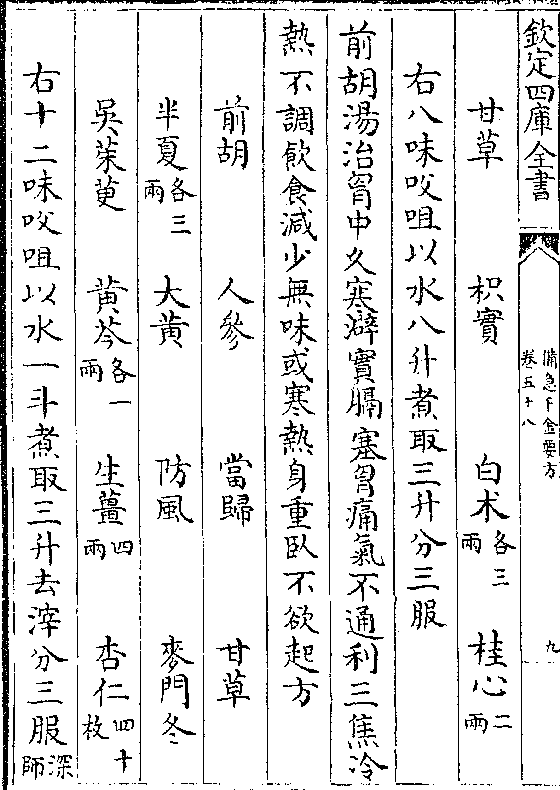 欽定四庫全書
備急千金要方
卷五十八
九
甘草 枳實 白术各三兩 桂心二兩
右八味㕮咀以水八升煮取三升分三服
前胡湯治胷中久寒澼實膈塞胷痛氣不通利三焦冷
熱不調飲食減少無味或寒熱身重臥不欲起方
前胡 人參 當歸 甘草
半夏各三兩 大黄 防風 麥門冬
吳茱萸 黄芩各一兩 生薑四兩 杏仁四十枚
右十二味㕮咀以水一斗煮取三升去滓分三服深師